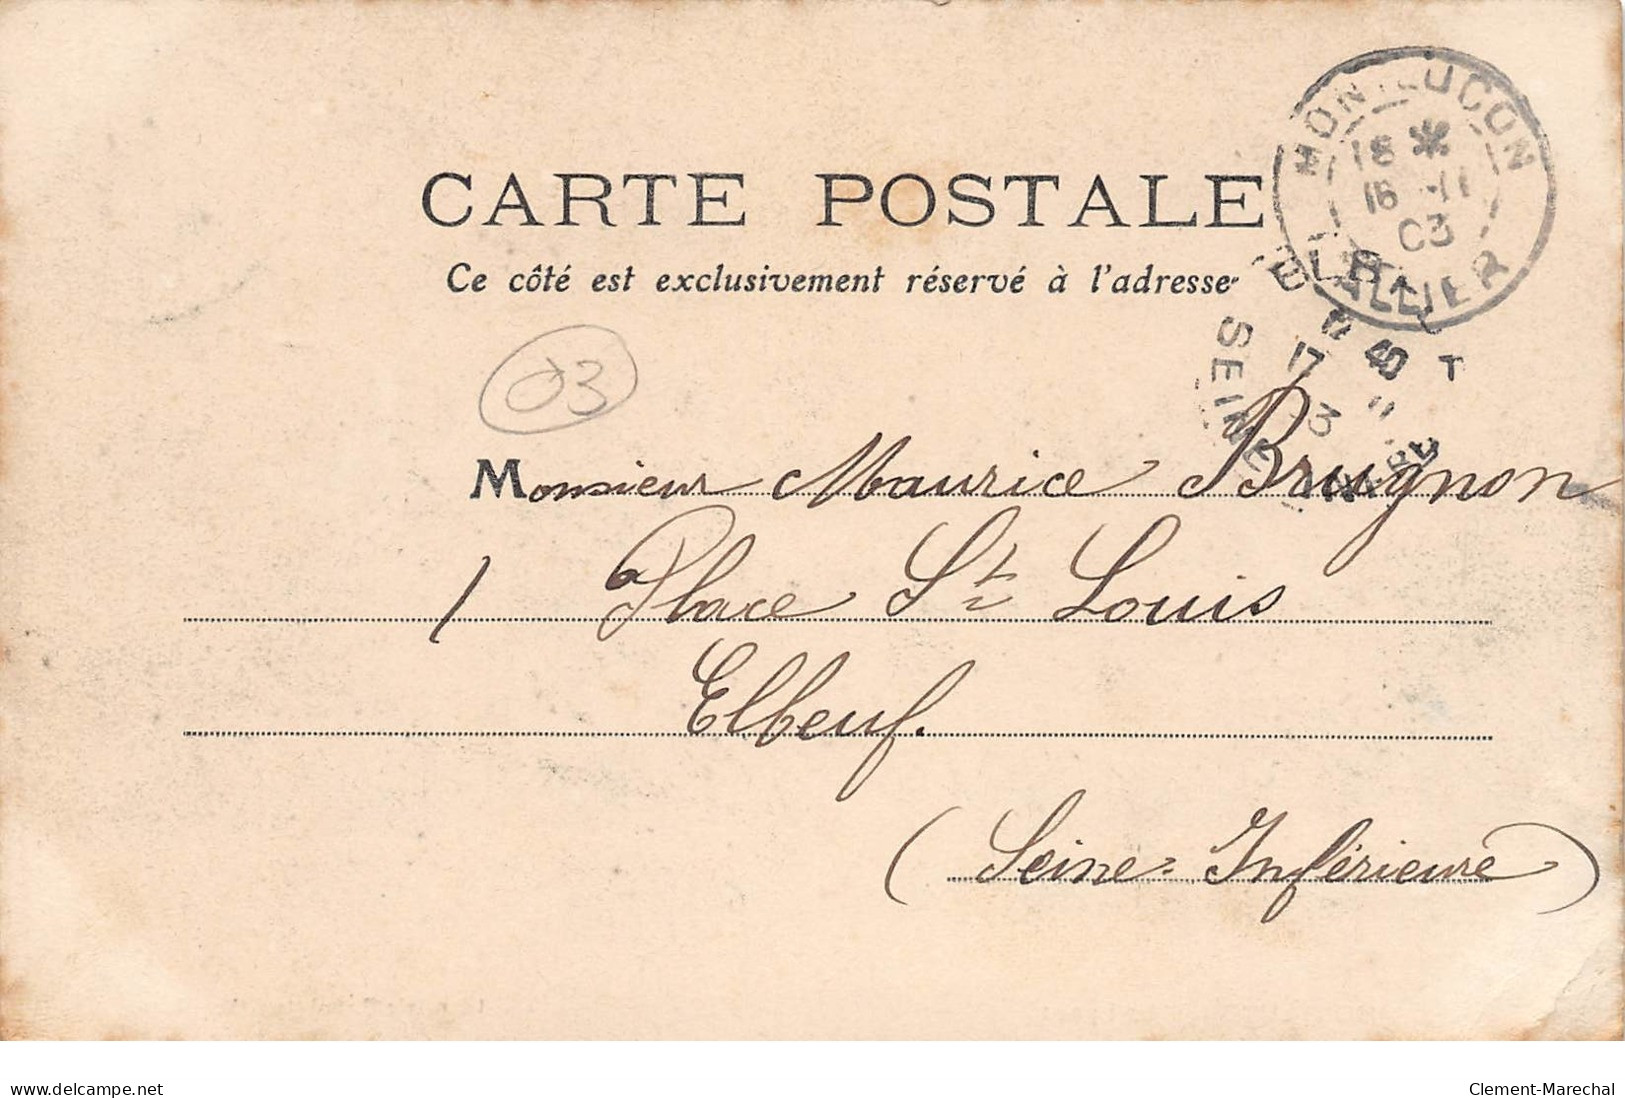 MONTLUCON
18 *
16 -11
03
ALLIER
CARTE POSTALE
Ce côté est exclusivement réservé à l'adresse
ELBEUF
17 11
3
SEINE INFRE
03
Monsieur Maurice Brugnon
1 Place St Louis
Elbeuf.
(Seine-Inférieure)
www.delcampe.net
Clement-Marechal